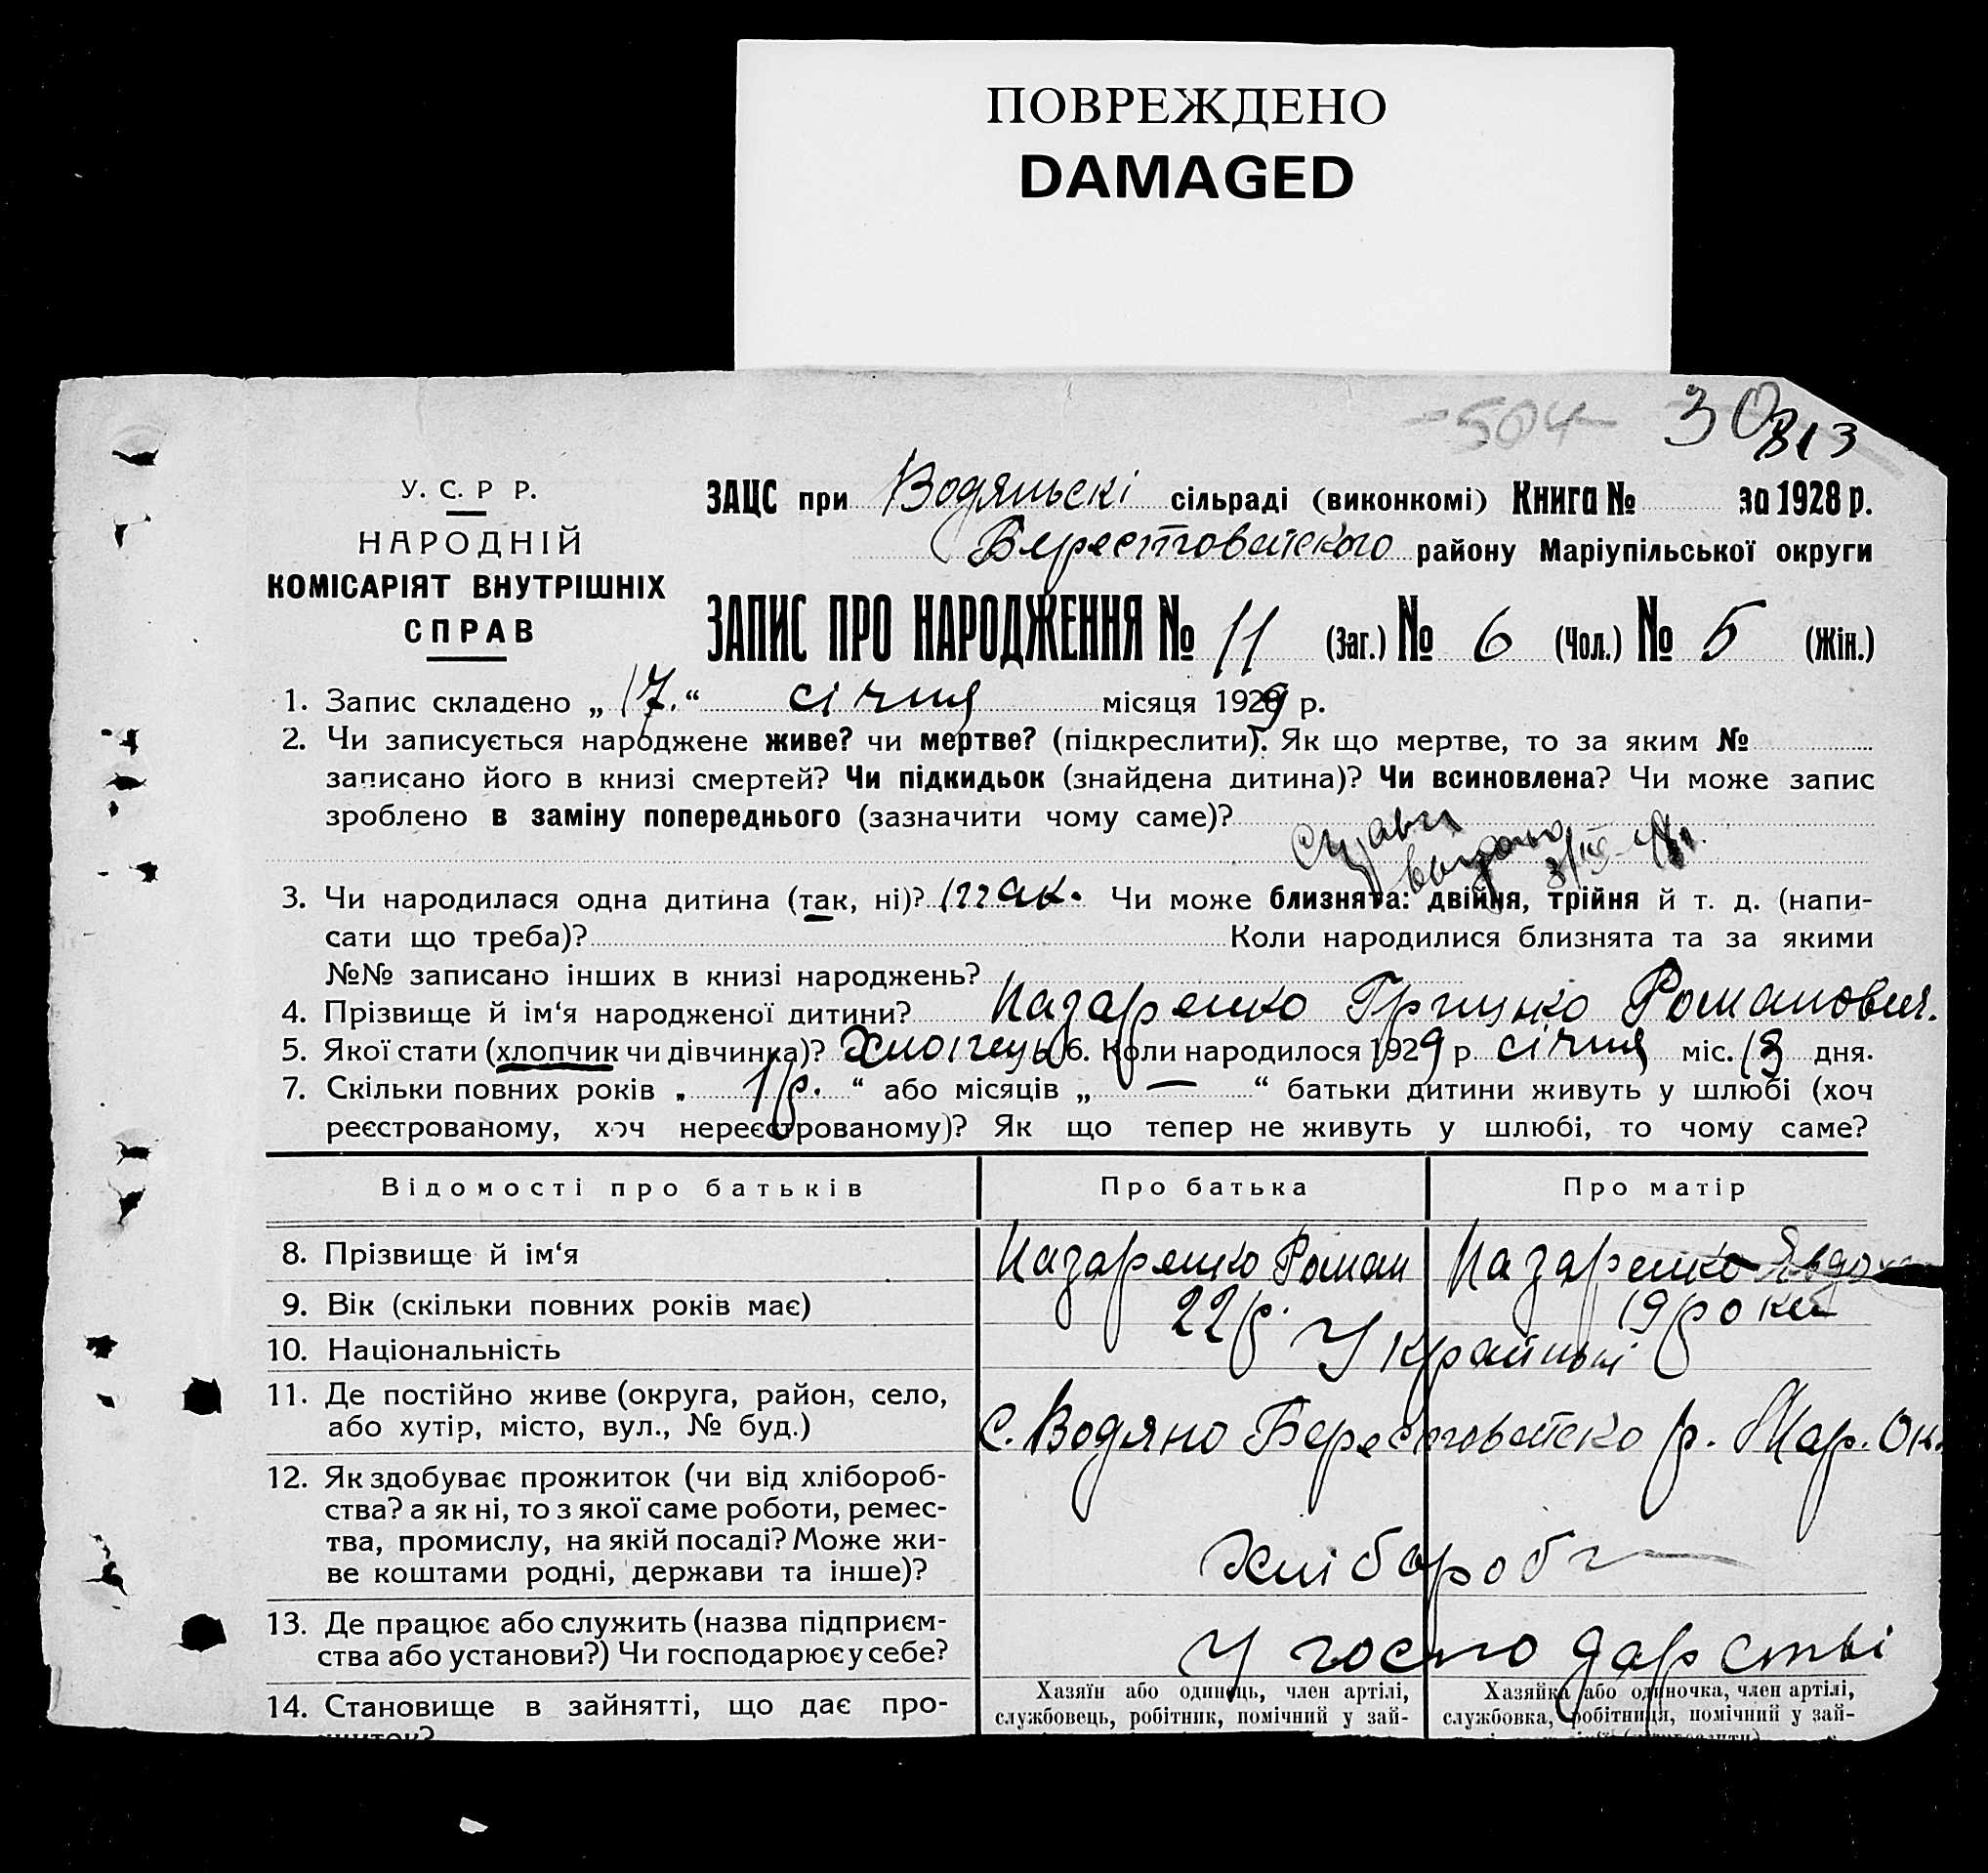 ПОВРЕЖДЕНО
DAMAGED
-504- 30
813
У. С. Р Р.
НАРОДНІЙ
КОМІСАРІЯТ ВНУТРІШНІХ
СПРАВ
ЗАЦС при Водяньскі сільраді (виконкомі) Книга № за 1928 р.
Берестовського району Маріупільської округи
ЗАПИС ПРО НАРОДЖЕННЯ № 11 (Заг.) № 6 (Чол.) № 5 (Жін.)
1. Запис складено „ 17. “ січня місяця 1929 р.
2. Чи записується народжене живе? чи мертве? (підкреслити). Як що мертве, то за яким №
записано його в книзі смертей? Чи підкидьок (знайдена дитина)? Чи всиновлена? Чи може запис
зроблено в заміну попереднього (зазначити чому саме)?
3. Чи народилася одна дитина (так, ні)? так. Чи може близнята: двійня, трійня й т. д. (напи-
сати що треба)? Коли народилися близнята та за якими
№№ записано інших в книзі народжень?
4. Прізвище й ім‘я народженої дитини? Назаренко Грицько Романович.
5. Якої стати (хлопчик чи дівчинка)? Хлопець 6. Коли народилося 1929 р січня міс. 13 дня.
7. Скільки повних років „ 1 р. “ або місяців „ — “ батьки дитини живуть у шлюбі (хоч
реєстрованому, хоч нереєстрованому)? Як що тепер не живуть у шлюбі, то чому саме?
Відомості про батьків Про батька Про матір
8. Прізвище й ім‘я Назаренко Роман Назаренко
9. Вік (скільки повних років має) 22 р. 19 роки
10. Національність Українці
11. Де постійно живе (округа, район, село,
або хутір, місто, вул., № буд.) с. Водяно Берестовсько р. Мар. Ок.
12. Як здобуває прожиток (чи від хлібороб-
ства? а як ні, то з якої саме роботи, ремес-
тва, промислу, на якій посаді? Може жи-
ве коштами родні, держави та інше)? хлібороб
13. Де працює або служить (назва підприєм-
ства або установи?) Чи господарює у себе? У господарстві
14. Становище в зайнятті, що дає про-
Хазяїн або одинець, член артілі,
службовець, робітник, помічний у зай-
Хазяйка або одиночка, член артілі,
службовка, робітниця, помічний у зай-